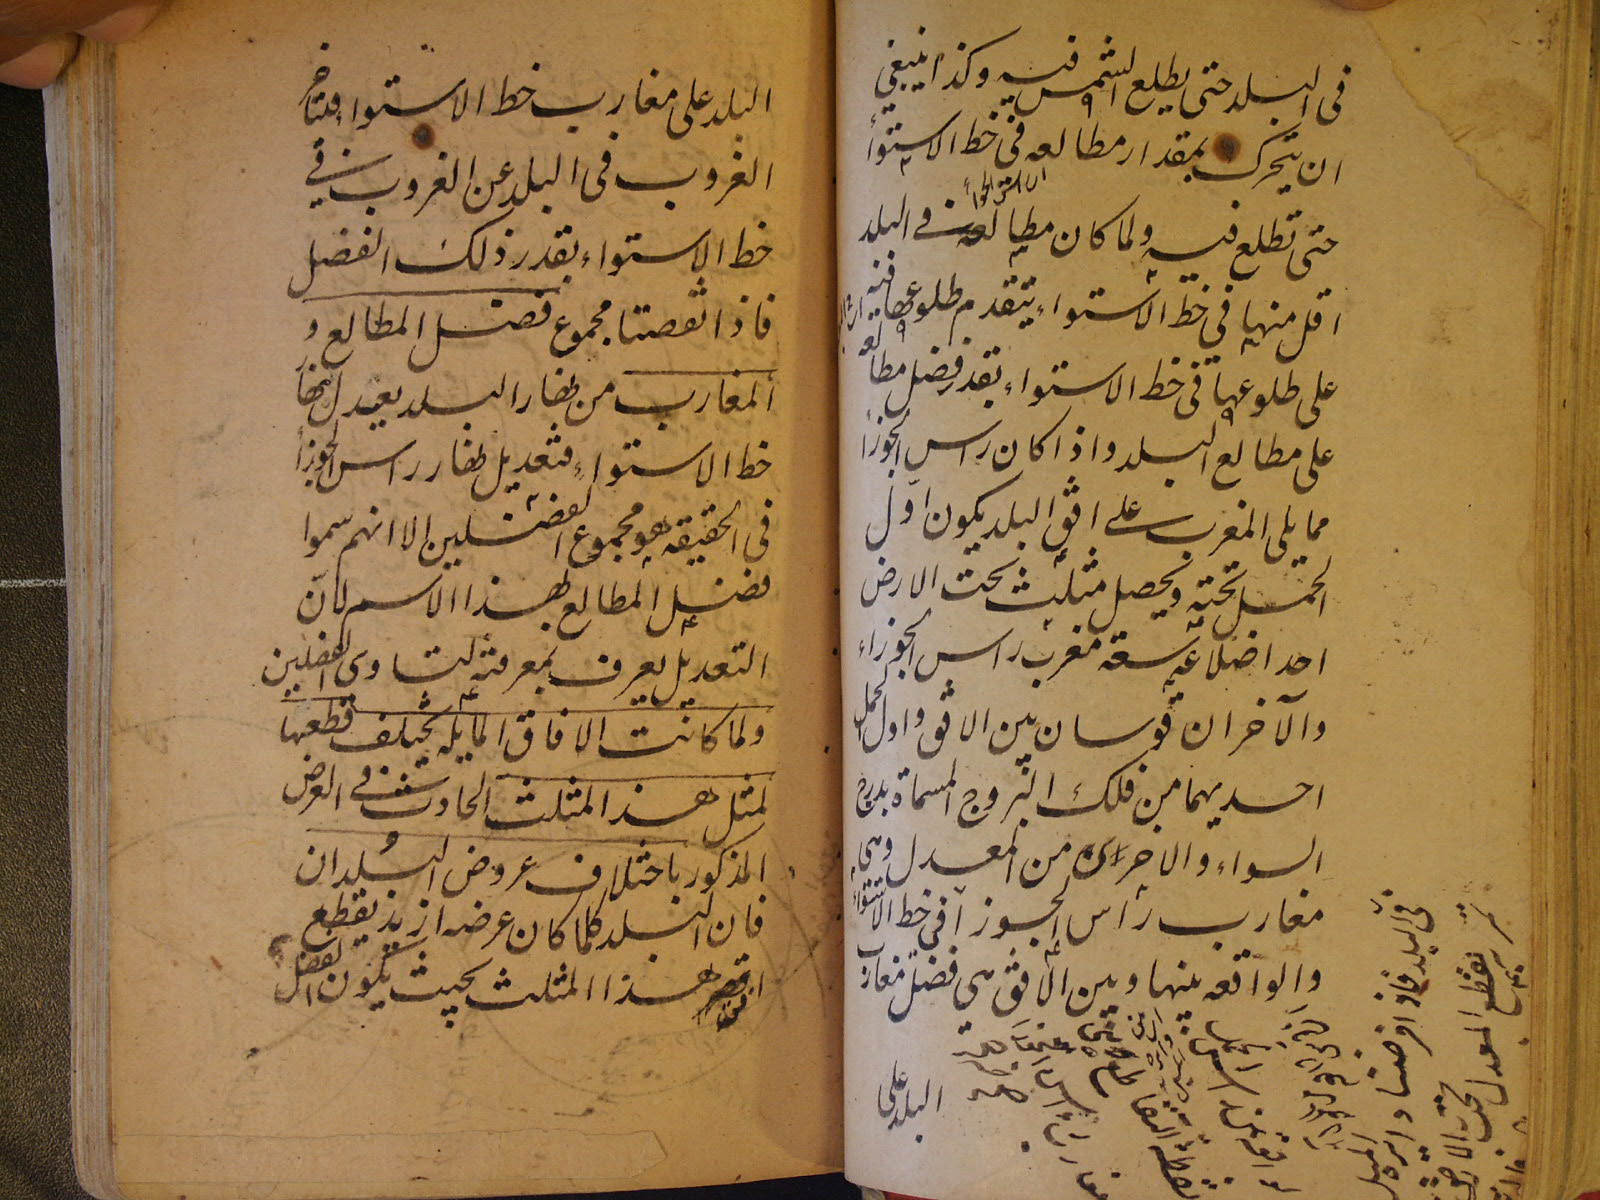 في البلد حتى يطلع الشمس فيه وكذا ينبغي
ان يتحرك بمقدار مطالعه في خط الاستواء
حتى تطلع فيه ولما كان مطالعه في البلد
اقل منها في خط الاستواء يتقدم طلوعها فيه
على طلوعها في خط الاستواء بقدر فضل مطالعه
على مطالع البلد واذا كان راس الجوزا
مما يلي المغرب على افق البلد يكون اول
الحمل تحته ويحصل مثلث تحت الارض
احد اضلاعه سعة مغرب راس الجوزاء
والآخران قوسان بين الافق واول الحمل
احديهما من فلك البروج المسماة بدرج
السواء والاخرى من المعدل وهي
مغارب راس الجوزا في خط الاستواء
والواقعة بينها وبين الافق هي فضل مغارب
البلد على
البلد على مغارب خط الاستواء فيتاخر
الغروب في البلد عن الغروب في
خط الاستواء بقدر ذلك الفضل
فاذا نقصنا مجموع فضل المطالع و
المغارب من نهار البلد يعدل نهار
خط الاستواء فتعديل نهار راس الجوزا
في الحقيقة هو مجموع الفضلين الا انهم سموا
فضل المطالع بهذا الاسم لان
التعديل يعرف بمعرفته لتساوى الفضلين
ولما كانت الافاق المايله تختلف قطعها
لمثل هذا المثلث الحادث في العرض
المذكور باختلاف عروض البلدان
فان البلد كلما كان عرضه ازيد يقطع
افقه هذا المثلث بحيث يكون الفضل